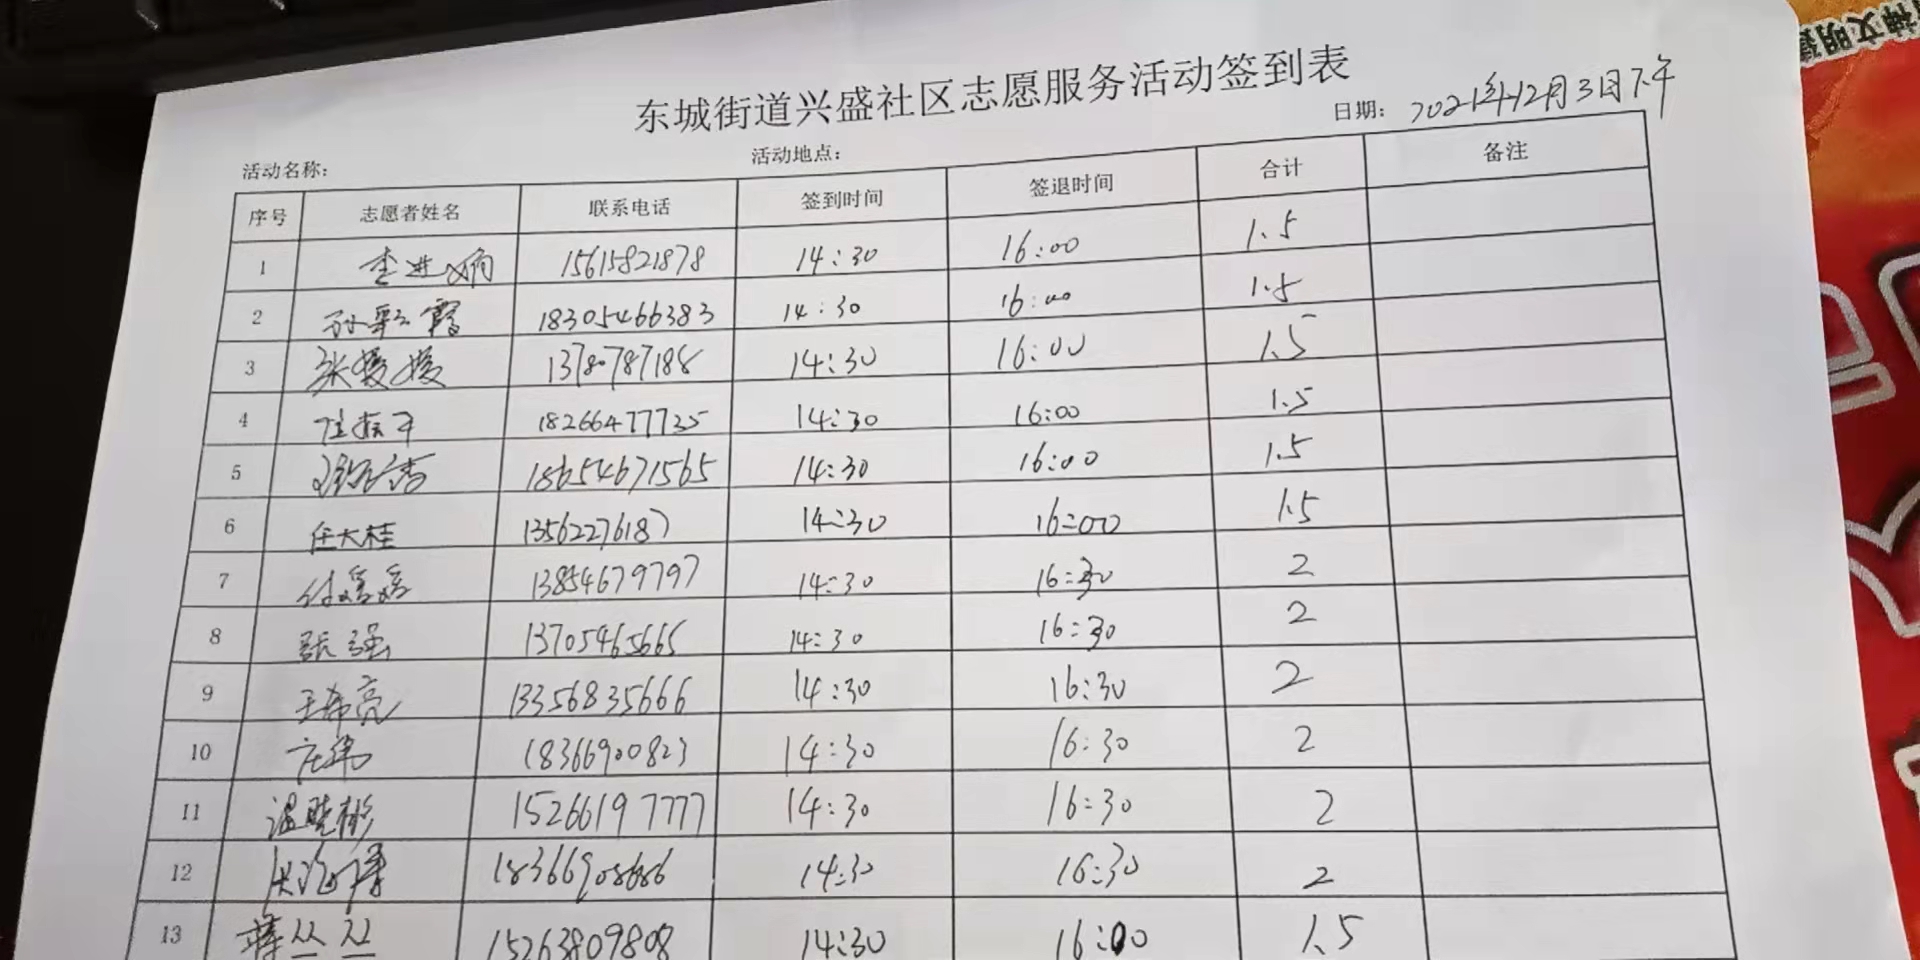 神文明
东城街道兴盛社区志愿服务活动签到表
日期： 2021年12月3日下午
活动名称： 活动地点：
序号 志愿者姓名 联系电话 签到时间 签退时间 合计 备注
1 15615821878 14:30 16:00 1.5
2 孙彩霞 18305466383 14:30 16:00 1.5
3 张媛媛 13780787188 14:30 16:00 1.5
4 18266477735 14:30 16:00 1.5
5 18654671565 14:30 16:00 1.5
6 任大桂 13562276187 14:30 16:00 1.5
7 13854679797 14:30 16:30 2
8 张强 13705465665 14:30 16:30 2
9 王希亮 13356835666 14:30 16:30 2
10 庄伟 18366900823 14:30 16:30 2
11 温晓彬 15266197777 14:30 16:30 2
12 18366908686 14:30 16:30 2
13 蒋丛丛 15263809808 14:30 16:00 1.5